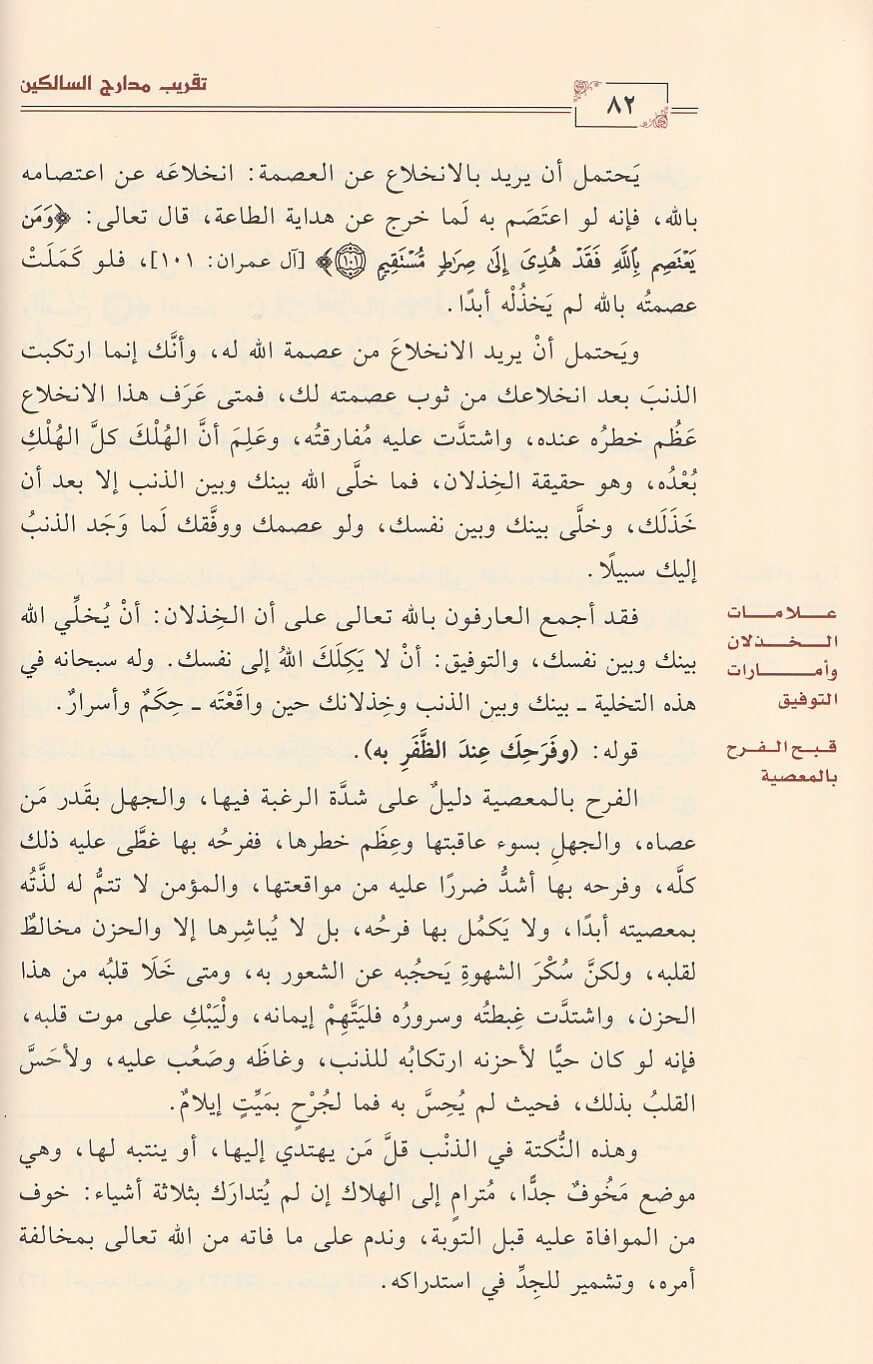 تقريب مدارج السالكين
٨٢
يَحتمل أن يريد بالانخلاع عن العصمة: انخلاعَه عن اعتصامه
بالله، فإنه لو اعتَصَم به لَما خرج عن هداية الطاعة، قال تعالى: ﴿وَمَن
يَعْتَصِم بِٱللَّهِ فَقَدْ هُدِىَ إِلَىٰ صِرَٰطٍ مُّسْتَقِيمٍ ۝١٠١﴾ [آل عمران: ١٠١]، فلو كَمَلَتْ
عصمتُه بالله لم يَخذُلْه أبدًا.
ويَحتمل أنْ يريد الانخلاعَ من عصمة الله له، وأنَّك إنما ارتكبت
الذنبَ بعد انخلاعك من ثوب عصمته لك، فمتى عَرَف هذا الانخلاع
عَظُم خطرُه عنده، واشتدَّت عليه مُفارقتُه، وعَلِمَ أنَّ الهُلْكَ كلَّ الهُلْكِ
بُعْدُه، وهو حقيقة الخِذلان، فما خلَّى الله بينك وبين الذنب إلا بعد أن
خَذَلَك، وخلَّى بينك وبين نفسك، ولو عصمك ووفَّقك لَما وَجَد الذنبُ
إليك سبيلًا.
علامات
الخذلان
وأمارات
التوفيق
فقد أجمع العارفون بالله تعالى على أن الخِذلان: أنْ يُخلِّي الله
بينك وبين نفسك، والتوفيق: أنْ لا يَكِلَكَ اللهُ إلى نفسك. وله سبحانه في
هذه التخلية ـ بينك وبين الذنب وخِذلانك حين واقَعْتَه ـ حِكَمٌ وأسرارٌ.
قبح الفرح
بالمعصية
قوله: (وفَرَحِك عِندَ الظَّفَرِ به).
الفرح بالمعصية دليلٌ على شدَّة الرغبة فيها، والجهل بقَدر مَن
عصاه، والجهلِ بسوء عاقبتها وعِظَم خطرها، ففرحُه بها غطَّى عليه ذلك
كلَّه، وفرحه بها أشدُّ ضررًا عليه من مواقعتها، والمؤمن لا تتمُّ له لذَّتُه
بمعصيته أبدًا، ولا يَكمُل بها فرحُه، بل لا يُباشِرها إلا والحزن مخالطٌ
لقلبه، ولكنَّ سُكْرَ الشهوةِ يَحجُبه عن الشعور به، ومتى خَلَا قلبُه من هذا
الحزن، واشتدَّت غِبطتُه وسرورُه فليَتَّهِمْ إيمانه، ولْيَبْكِ على موت قلبه،
فإنه لو كان حيًّا لأحزنه ارتكابُه للذنب، وغاظَه وصَعُب عليه، ولأحَسَّ
القلبُ بذلك، فحيث لم يُحِسَّ به فما لجُرْحٍ بمَيِّتٍ إيلامٌ.
وهذه النُّكتة في الذنْب قلَّ مَن يهتدي إليها، أو ينتبه لها، وهي
موضع مَخُوفٌ جدًّا، مُترامٍ إلى الهلاك إن لم يُتدارَك بثلاثة أشياء: خوف
من الموافاة عليه قبل التوبة، وندم على ما فاته من الله تعالى بمخالفة
أمره، وتشمير للجِدِّ في استدراكه.